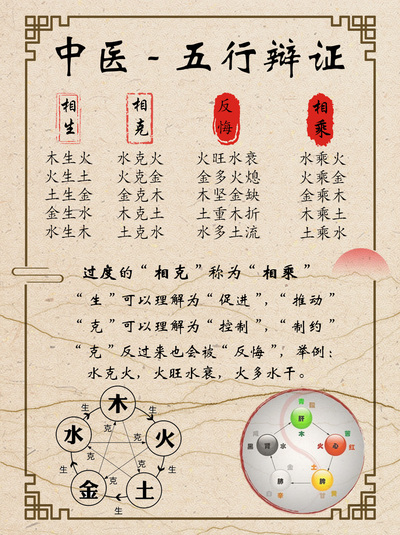 中医-五行辩证
相生 相克 反悔 相乘
木生火 水克火 火旺水衰 水乘火
火生土 火克金 金多火熄 火乘金
土生金 金克木 木坚金缺 金乘木
金生水 木克土 土重木折 木乘土
水生木 土克水 水多土流 土乘水
过度的“相克”称为“相乘”
“生”可以理解为“促进”,“推动”
“克”可以理解为“控制”,“制约”
“克”反过来也会被“反悔”,举例:
水克火,火旺水衰,火多水干。
木
生 生
水 克 克 火
克 克
生 克 生
金 生 土
青
肝
木
黑 肾 水 火 心 红
金 土
白 肺 脾 黄